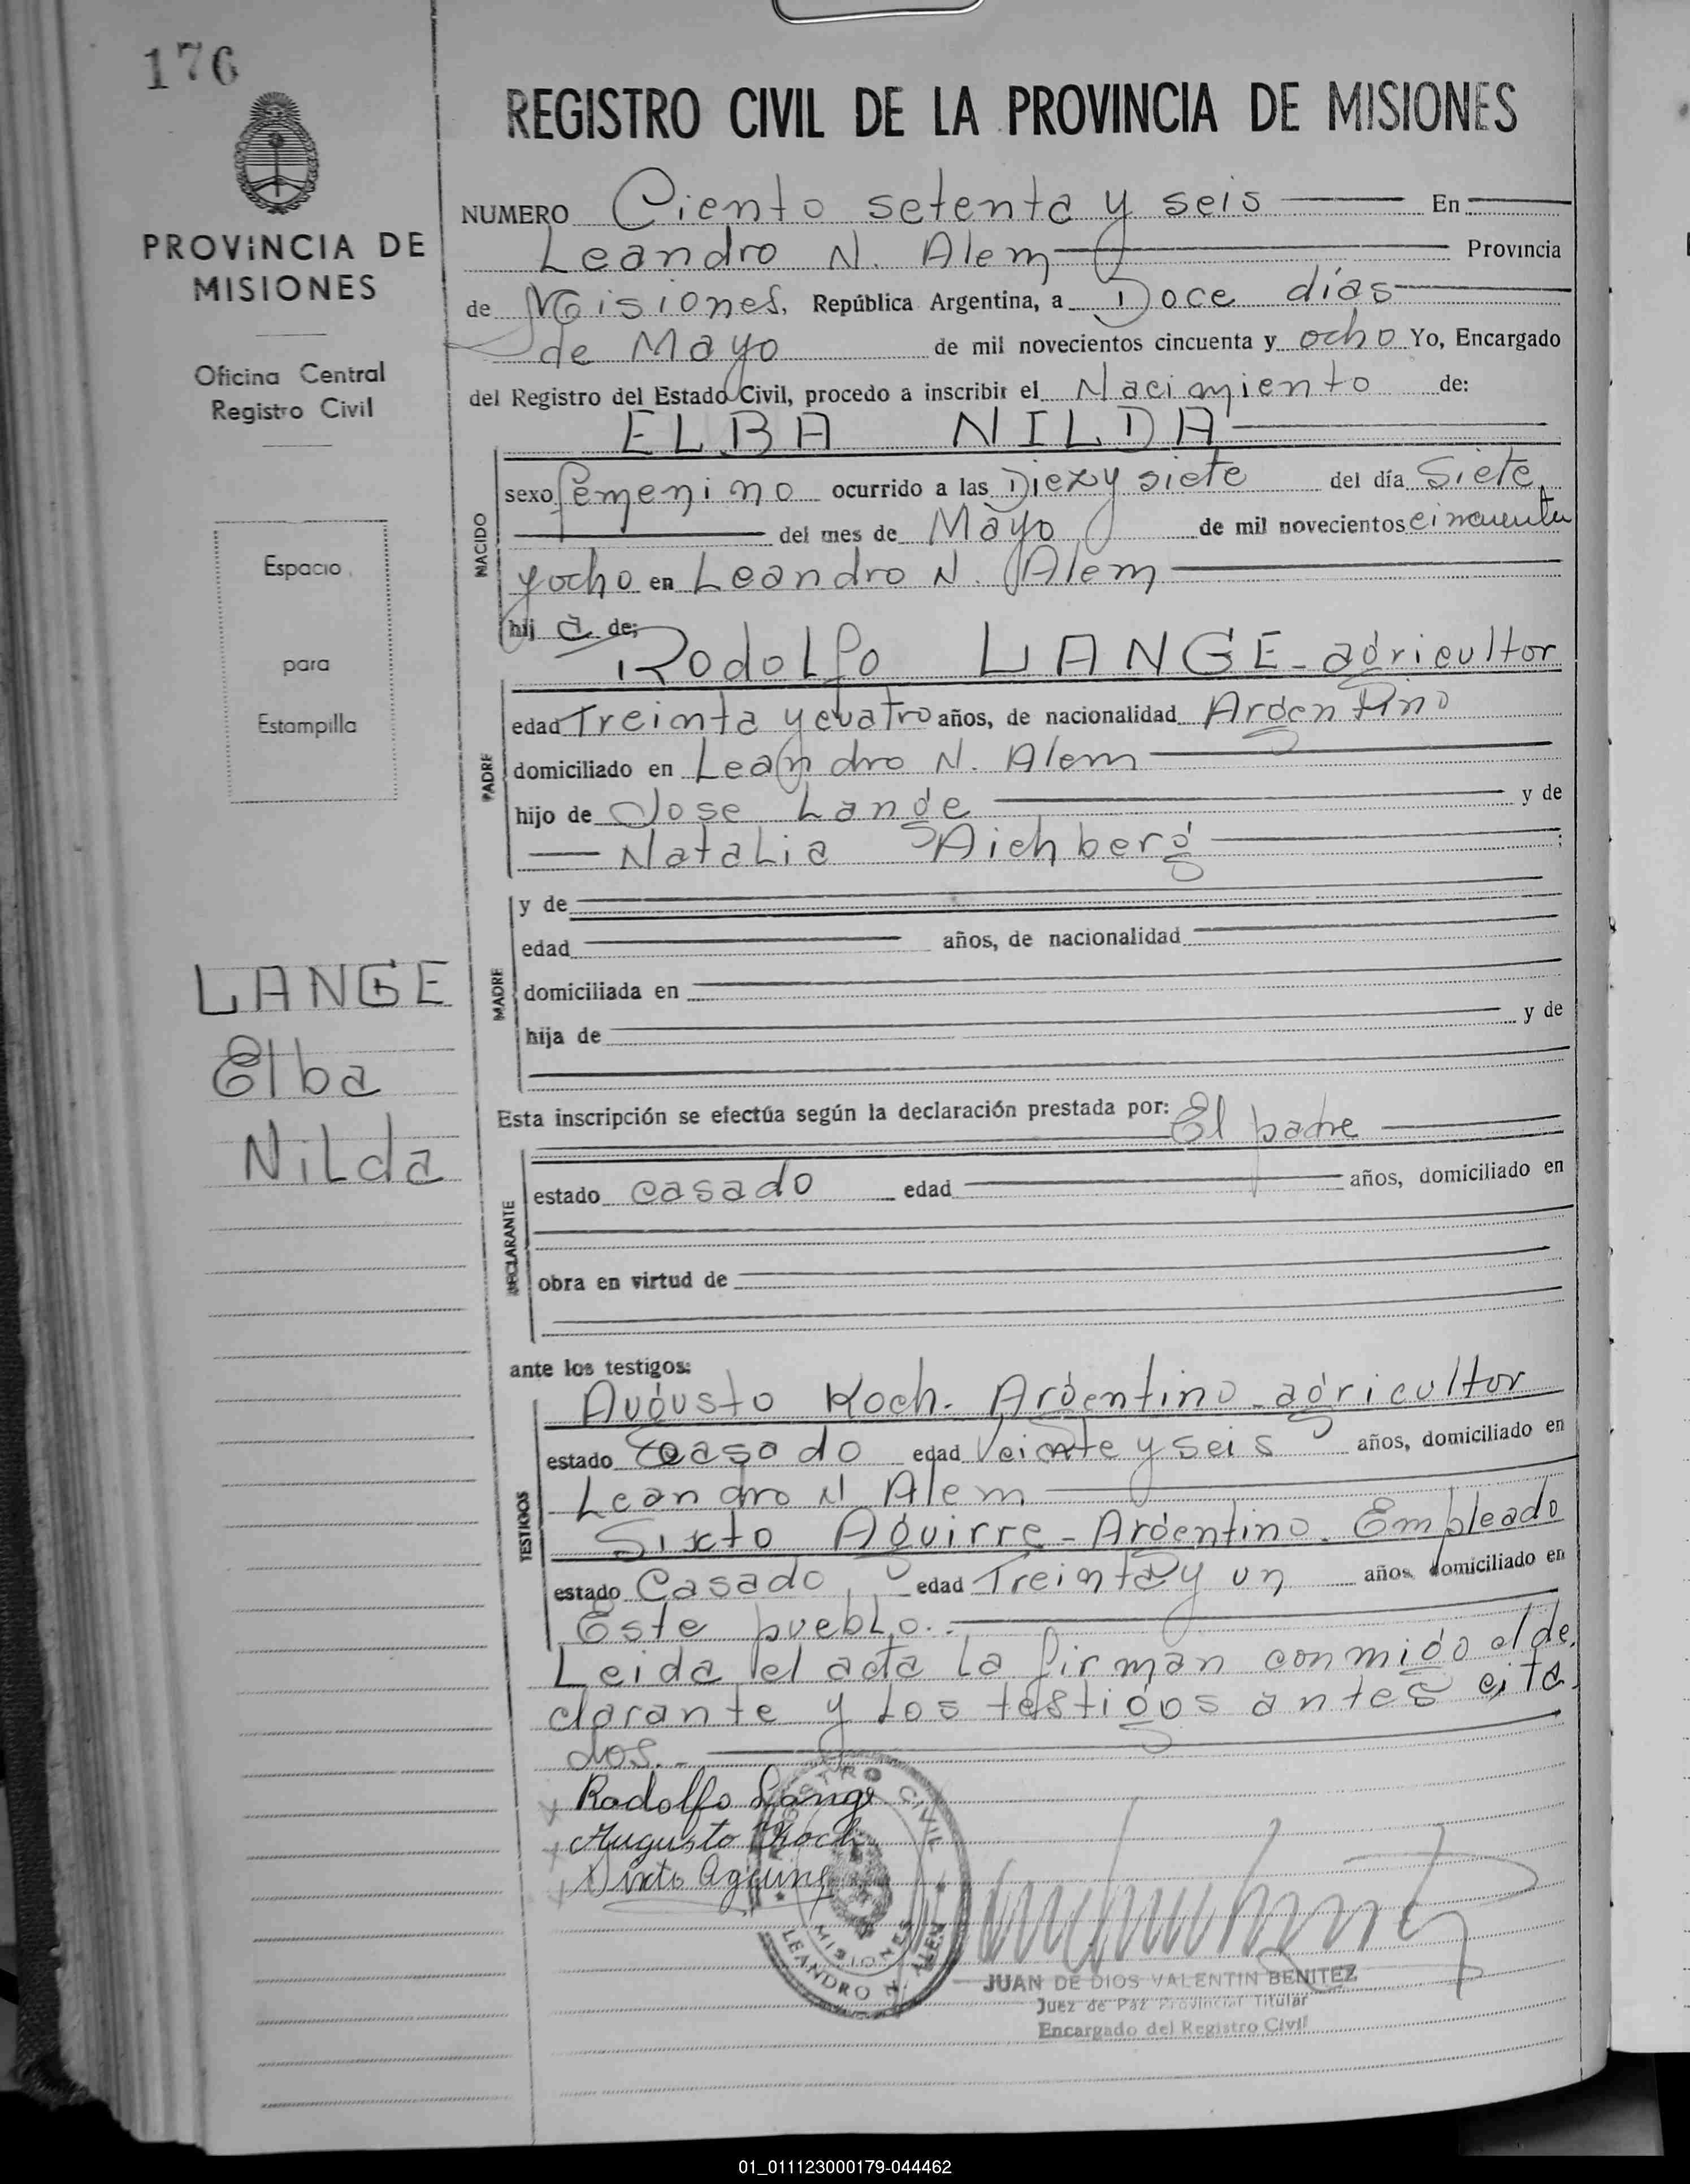 176
REGISTRO CIVIL DE LA PROVINCIA DE MISIONES
PROVINCIA DE
MISIONES
Oficina Central
Registro Civil
Espacio
para
Estampilla
LANGE
Elba
Nilda
NUMERO Ciento setenta y seis En
Leandro N. Alem Provincia
de Misiones, República Argentina, a Doce días
de Mayo de mil novecientos cincuenta y ocho Yo, Encargado
del Registro del Estado Civil, procedo a inscribir el Nacimiento de:
ELBA NILDA
NACIDO
sexo femenino ocurrido a las Diez y siete del día Siete
del mes de Mayo de mil novecientos cincuenta
y ocho en Leandro N. Alem
hij a de:
Rodolfo LANGE - agricultor
PADRE
edad Treinta y cuatro años, de nacionalidad Argentino
domiciliado en Leandro N. Alem
hijo de Jose Lange y de
Natalia Aichberg ;
MADRE
y de
edad años, de nacionalidad
domiciliada en
hija de y de
Esta inscripción se efectúa según la declaración prestada por: El padre
DECLARANTE
estado casado edad años, domiciliado en
obra en virtud de
ante los testigos:
TESTIGOS
Augusto Koch - Argentino - agricultor
estado casado edad Veinte y seis años, domiciliado en
Leandro N Alem
Sixto Aguirre - Argentino. Empleado
estado Casado, edad Treinta y un años, domiciliado en
Este pueblo.-
Leida el acta la firman conmigo el de
clarante y los testigos antes cita
dos.-
x Rodolfo Lange
x Augusto Koch
x Sixto Aguirre
REGISTRO CIVIL
MISIONES
LEANDRO N. ALEM
JUAN DE DIOS VALENTIN BENITEZ
Juez de Paz Provincial Titular
Encargado del Registro Civil
01_011123000179-044462